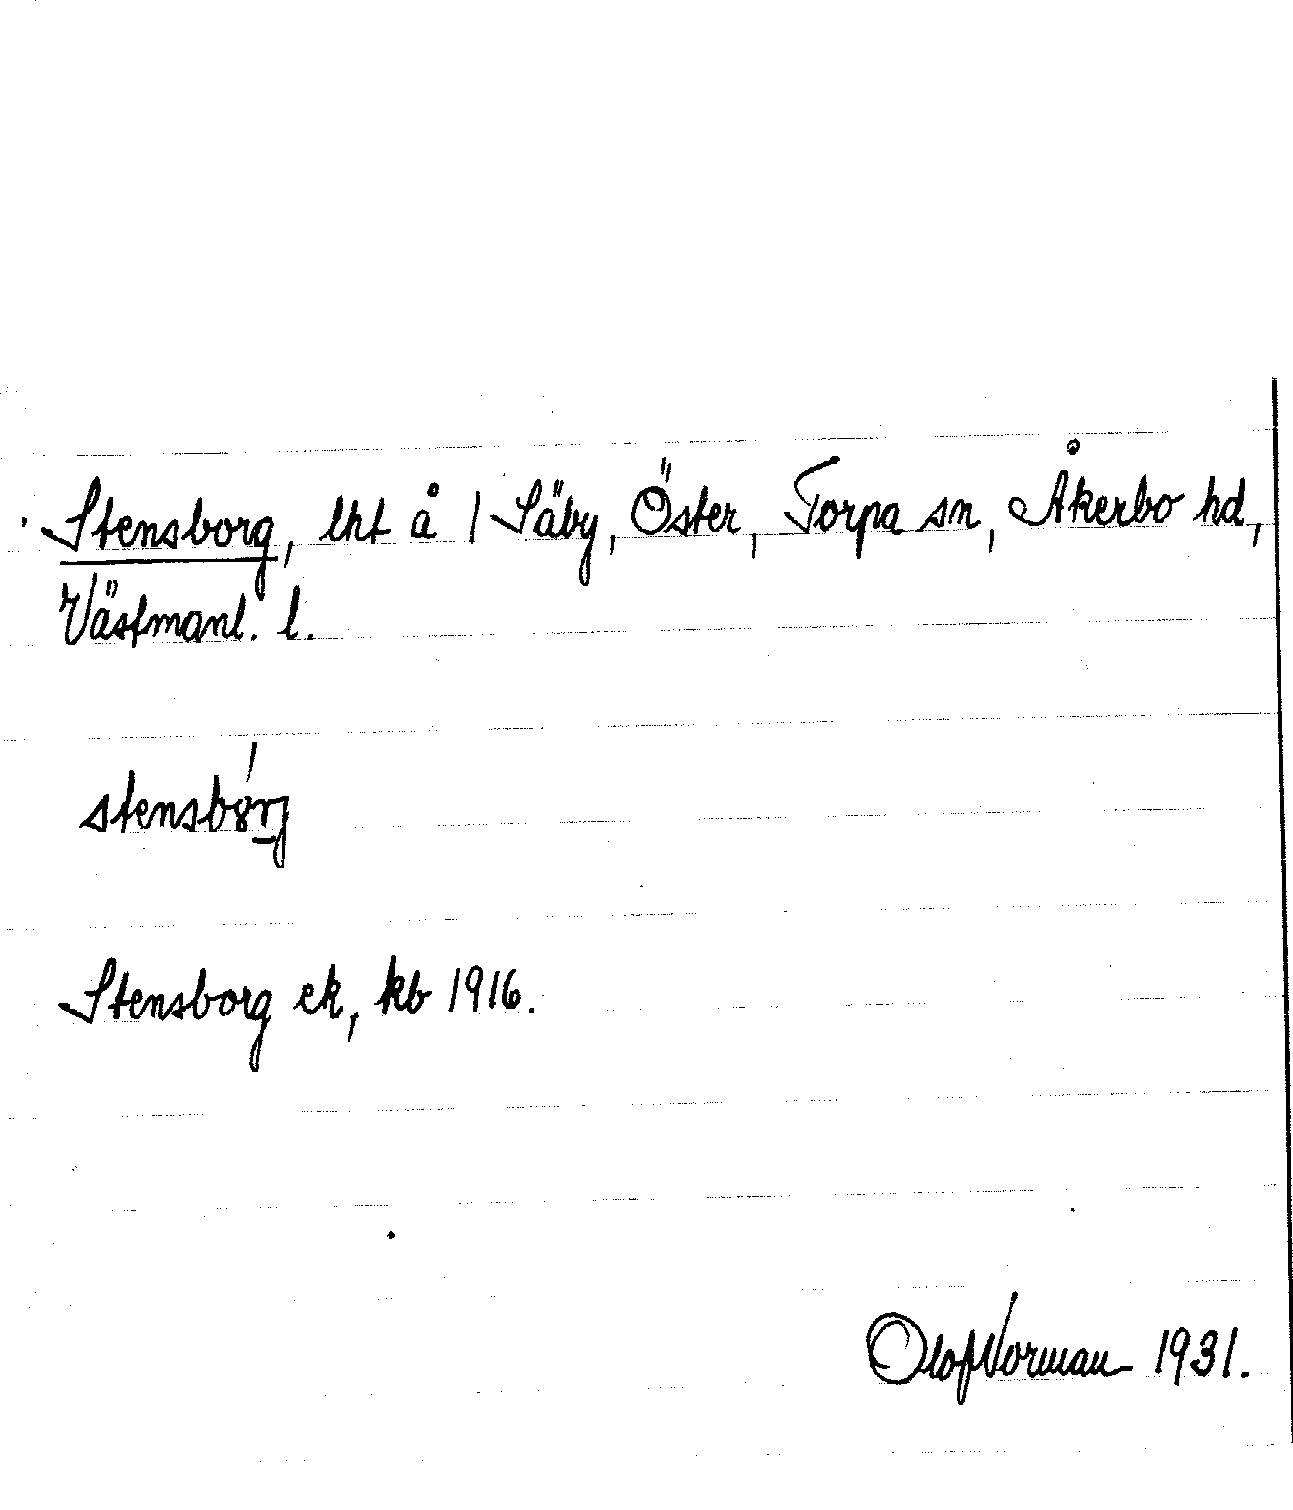 Stensborg, lht å 1 Säby, Öster, Torpa sn, Åkerbo hd,
Västmanl. l.
stensbórj
Stensborg ek, kb 1916.
Olof Norman 1931.